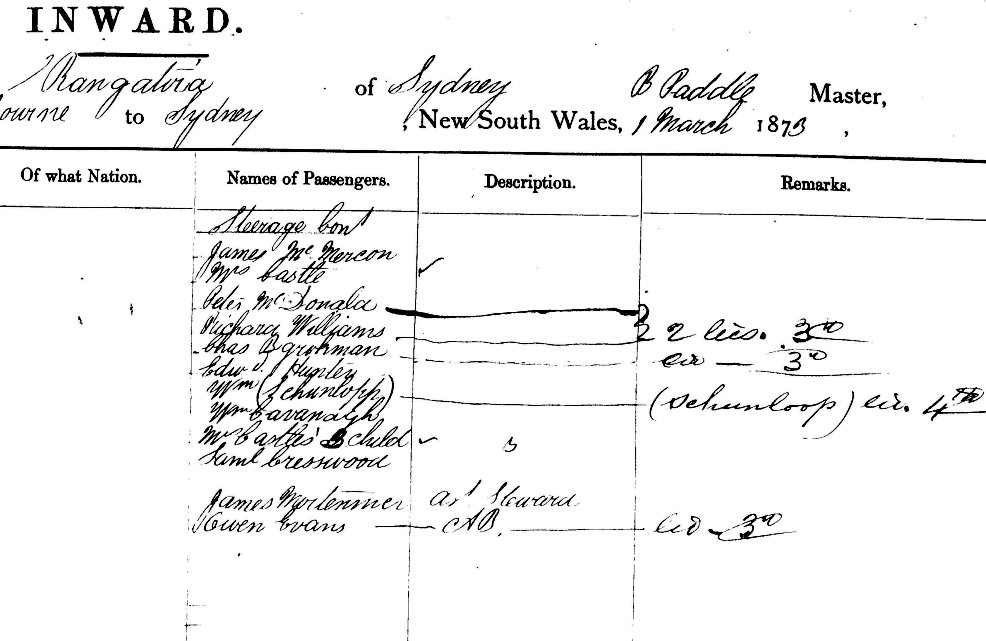 INWARD.
Rangatira of Sydney B Paddle Master,
ourne to Sydney, New South Wales, 1 March 1873,
Of what Nation. Names of Passengers. Description. Remarks.
Steerage Cont
James Mc Mercon
Mrs Castle ✓
Peter McDonald
Richard Williams 2 lies. 3rd
Chas Bgrohman 3rd
Edwd Huxley
Wm (Schunlopp) (Schunloop) 4th
Wm Cavanagh
Mrs Castles' 3 child ✓ 3
Saml Cresswood
James Mortenmer Ast Steward
Owen Evans AB. 3rd